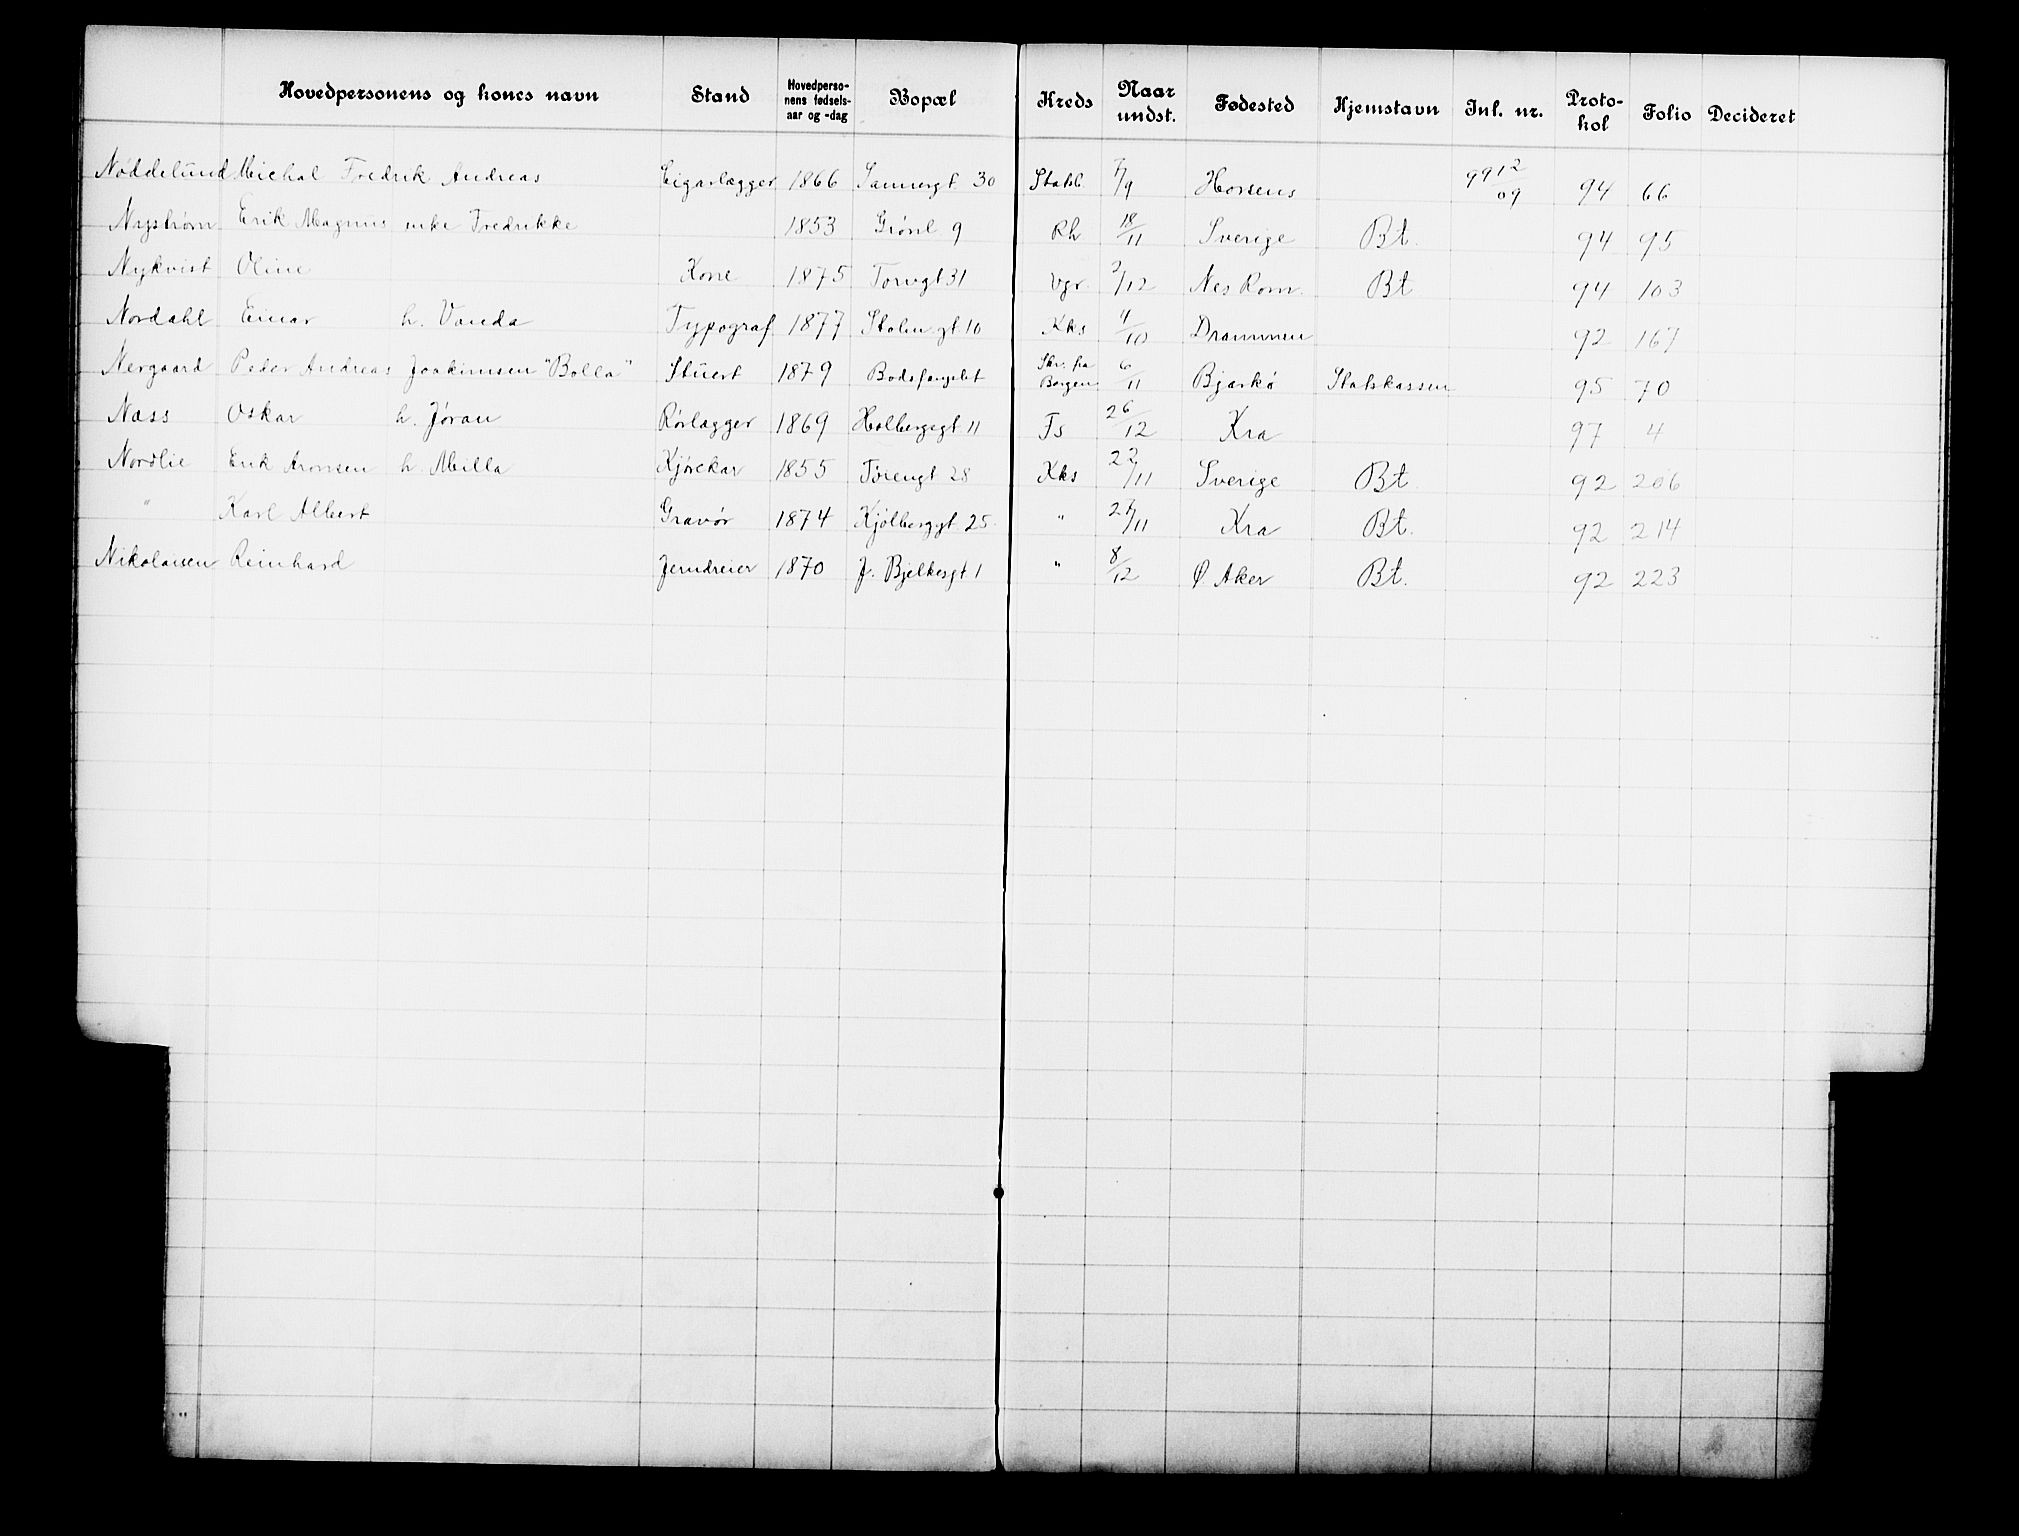 Hovedpersonens og kones navn Stand Hovedpersonens fødselsaar og -dag Bopæl Kreds Naar undst. Fødested Hjemstavn Inl. nr. Protokol Folio Decideret
Nøddelund Michal Fredrik Andreas Cigarlægger 1866 Sannergt. 30 Statsb. 7/9 Horsens 9912/09 94 66
Nystrøm Erik Magnus enke Fredrikke 1853 Grønl 9 Rh 18/11 Sverige Bt. 94 95
Nykvist Oline Kone 1875 Torvgt 31 Vgr. 2/12 Nes Rom. Bt 94 103
Nordahl Einar h. Vanda Typograf 1877 Holmgt 10 Kks 4/10 Drammen 92 167
Nergaard Peder Andreas Joakimsen "Bolla" Stuert 1879 Bodsfengslet Skr. fra Bergen 6/11 Bjarkø Statskassen 95 70
Næss Oskar h. Jøran Rørlægger 1869 Holbergsgt 11 Fs 26/12 Kra 97 4
Nordlie Erik Aronsen h. Milla Kjørekar 1855 Tøiengt 28 Kks 22/11 Sverige Bt 92 206
" Karl Albert Gravør 1874 Kjølberggt 25. " 27/11 Kra Bt. 92 214
Nikolaisen Reinhard Jerndreier 1870 J. Bjelkesgt. 1 " 8/12 Ø Aker Bt. 92 223